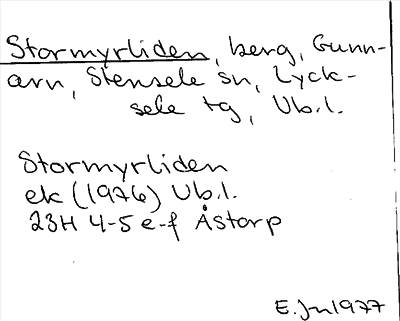 Stormyrliden, berg, Gunn-
arn, Stensele sn, Lyck-
sele tg, Vb.l.
Stormyrliden
ek (1976) Vb.l.
23H 4-5 e-f Åstorp
E.Jn 1977